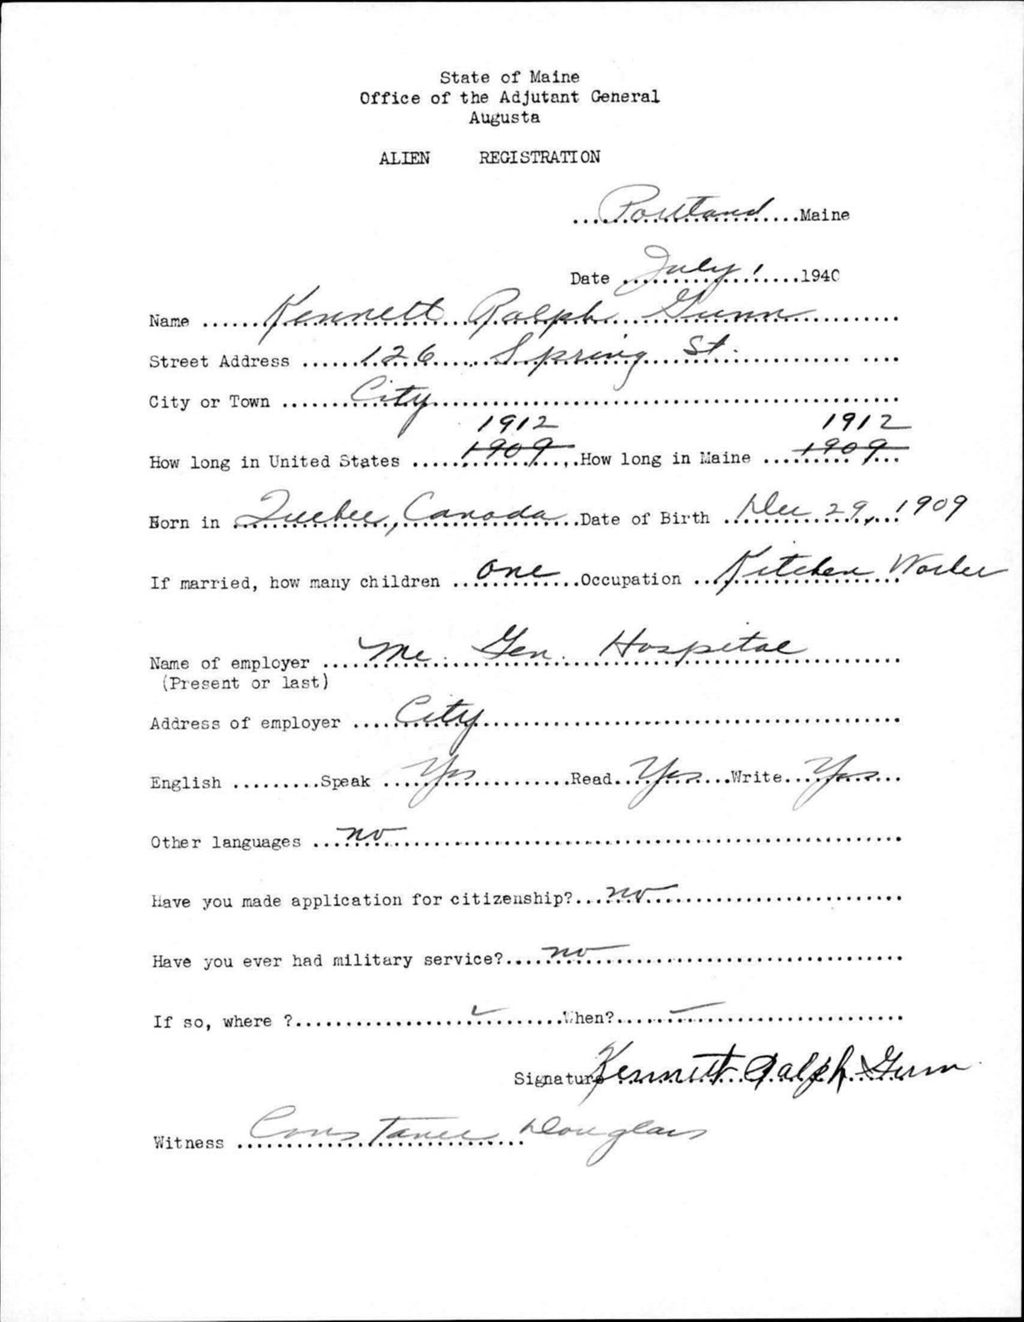 State of Maine
Office of the Adjutant General
Augusta
ALIEN REGISTRATION
....Portland....Maine
Date ....July 1....1940
Name ......Kennett Ralph Gunn......
Street Address ......126 Spring St.......
City or Town ......City......
1912 1912
How long in United States ....1909....How long in Maine ....1909....
Born in ....Quebec, Canada....Date of Birth ....Dec 29, 1909
If married, how many children ....one....Occupation ....Kitchen Worker
Name of employer ....Me. Gen. Hospital....
(Present or last)
Address of employer ....City....
English .........Speak ....Yes....Read....Yes....Write....Yes....
Other languages ....no....
Have you made application for citizenship?....no....
Have you ever had military service?....no....
If so, where ?........When?........
Signature Kennett Ralph Gunn
Witness ....Constance Douglass